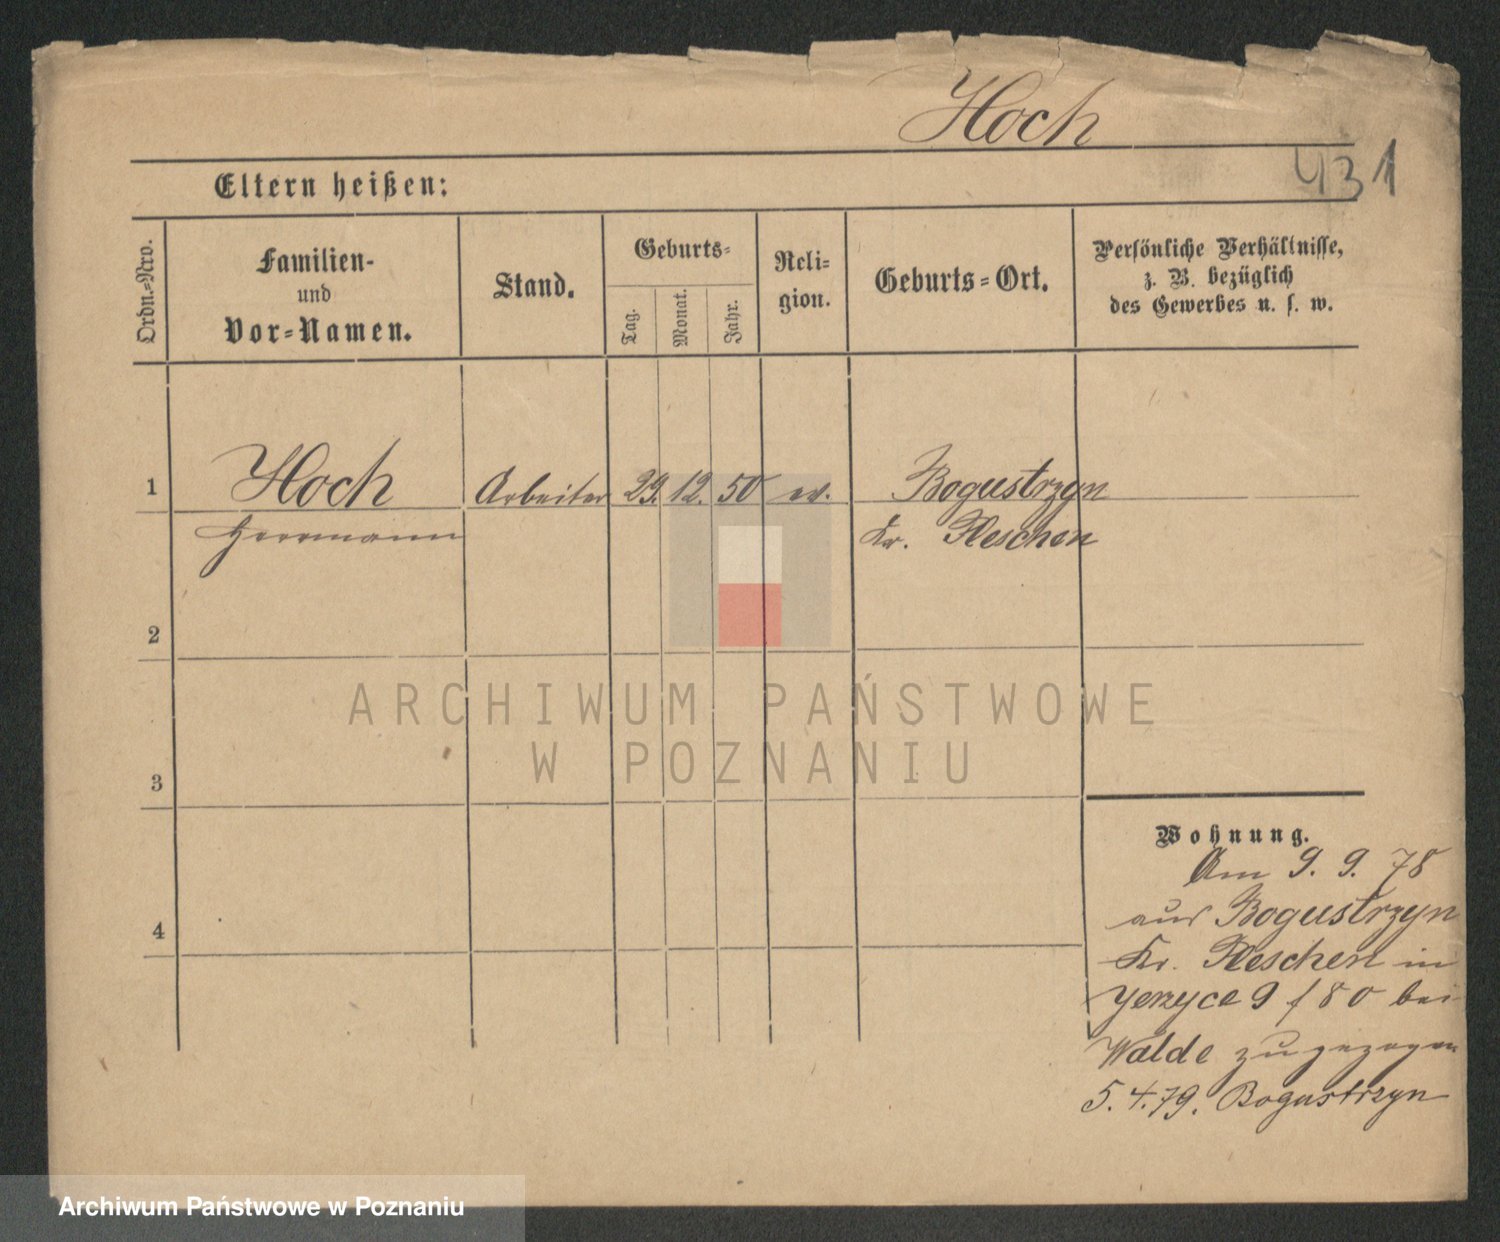 Hoch
431
Eltern heißen:
Ordn.-Nro.
Familien-
und
Vor-Namen.
Stand.
Geburts-
Tag.
Monat.
Jahr.
Reli-
gion.
Geburts-Ort.
Persönliche Verhältnisse,
z. B. bezüglich
des Gewerbes u. s. w.
1 Hoch Arbeiter 29. 12. 50 ev. Bogustrzyn
Herrmann Kr. Pleschen
2
3
4
ARCHIWUM PAŃSTWOWE
W POZNANIU
Wohnung.
Am 9. 9. 78
aus Bogustrzyn
Kr. Pleschen in
Jerzyce 9 f 80 bei
Walde zugezogen
5. 4. 79. Bogustrzyn
Archiwum Państwowe w Poznaniu